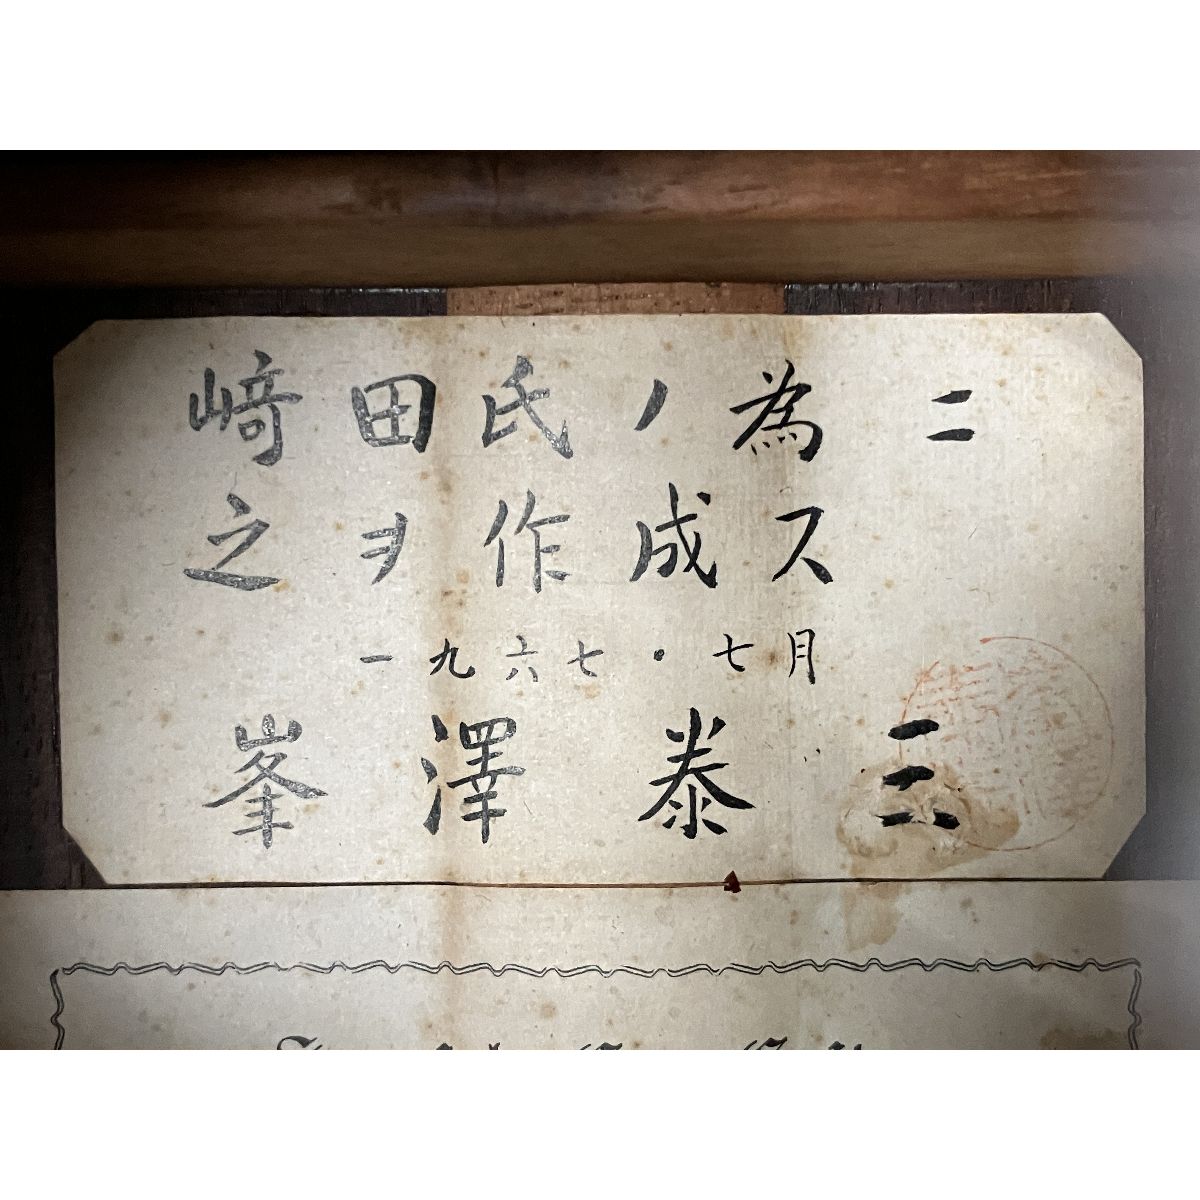 﨑田氏ノ為ニ
之ヲ作成ス
一九六七・七月
峯澤泰三